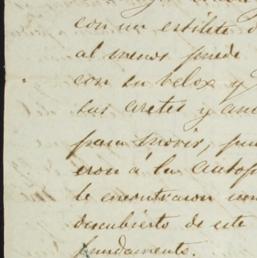 con un estilete
al menos puede
con su relox y
sus aretes y
para morir, pue
eron á la autop
le encontraron
descubierto de este
fundamento.